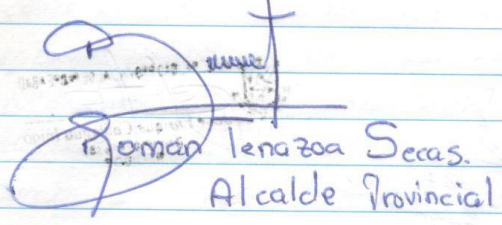 Román Tenazoa Secas.
Alcalde Provincial